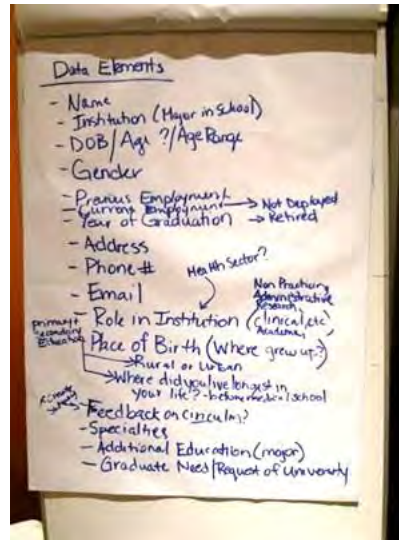 Data Elements
- Name
- Institution (Major in School)
- DOB/Age ?/Age Range
- Gender
- Previous Employment
- Current Employment → Not Deployed
- Year of Graduation → Retired
- Address
- Phone #
Health Sector?
- Email
Non Practicing
Administrative
Research
- Role in Institution (clinical, etc
Academic)
primary +
Secondary
Education
Place of Birth (Where grew up?)
→ Rural or Urban
→ Where did you live longest in
your life? - before medical school
- Feedback on
- Specialties
- Additional Education (major)
- Graduate Need/Request of University